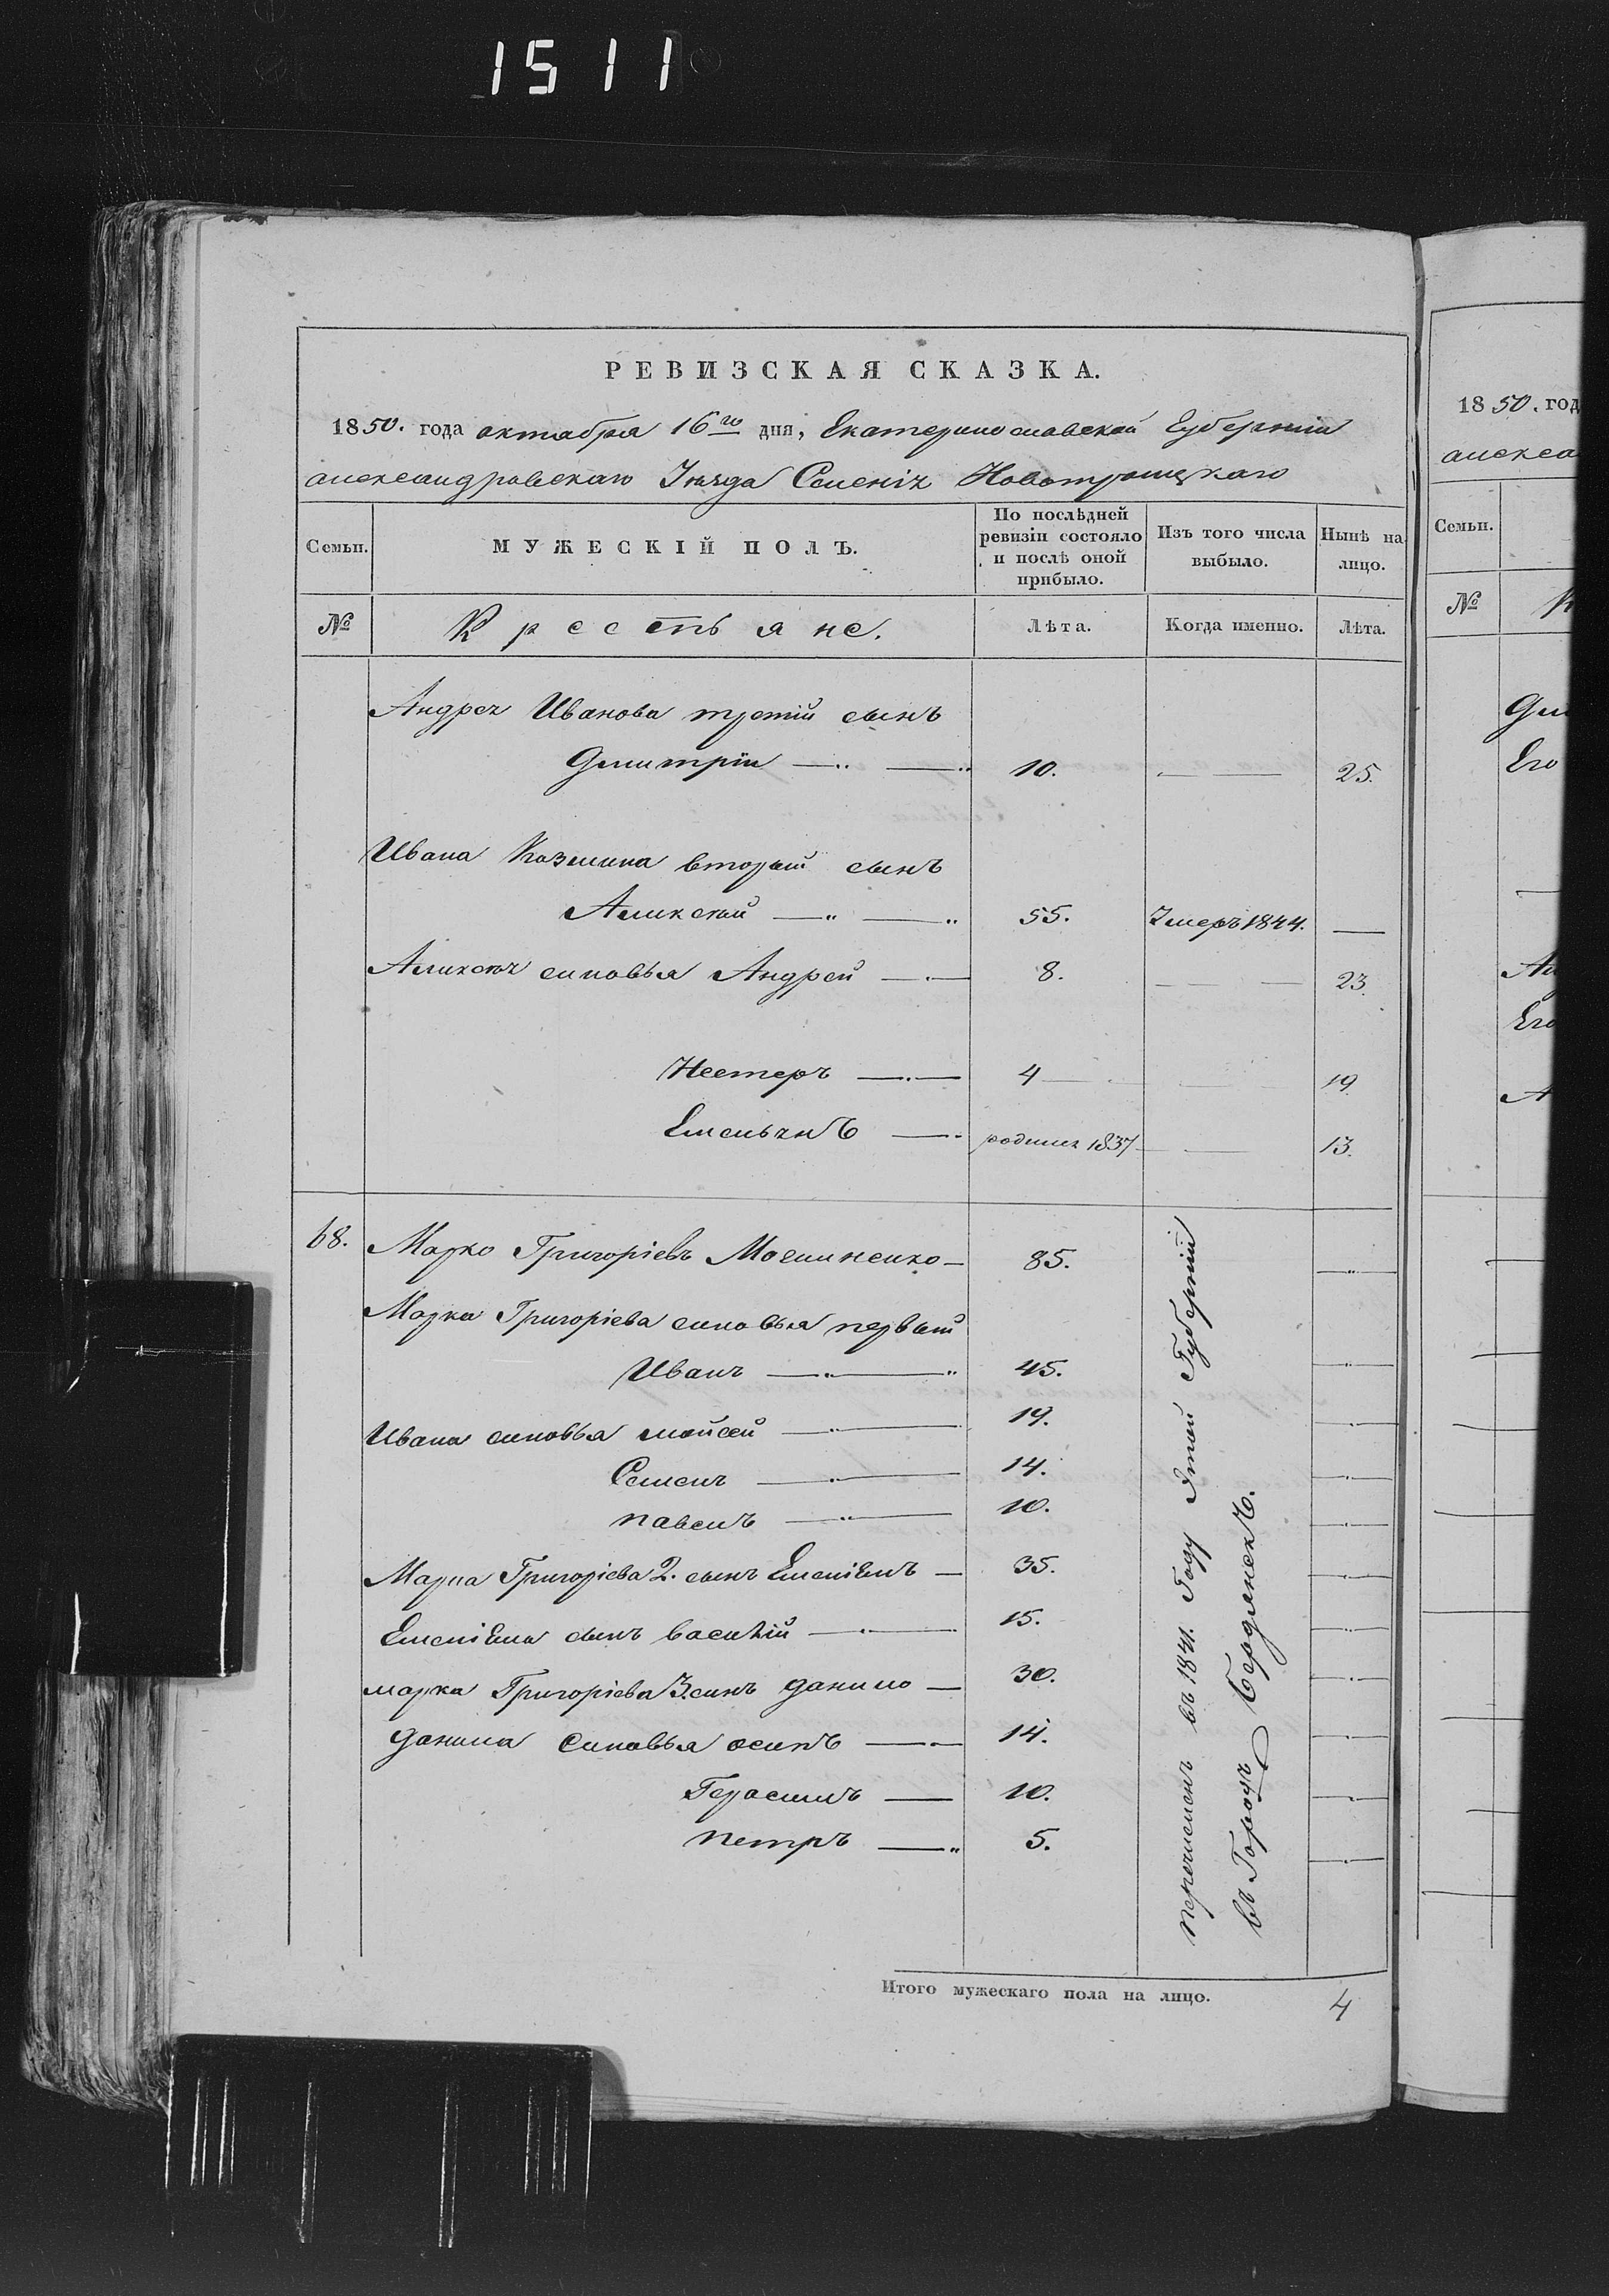 1511
РЕВИЗСКАЯ СКАЗКА.
1850. года октября 16го дня, Екатеринославской Губерніи
александровскаго Уѣзда Селенія Новотроицкаго
Семьи. МУЖЕСКІЙ ПОЛЪ. По послѣдней ревизіи состояло и послѣ оной прибыло. Изъ того числа выбыло. Нынѣ на лицо.
№ Крестьяне. Лѣта. Когда именно. Лѣта.
Андрея Иванова третій сынъ
Дмитрій 10. 25.
Ивана Козмина вторый сынъ
Аликсѣй 55. Умеръ 1844.
Аликсѣя синовья Андрей 8. 23.
Нестеръ 4 19
Емельянъ родился 1837 13.
68. Марко Григоріевъ 85.
Марка Григоріева синовья первый
Иванъ 45.
Ивана синовья мойсей 19.
Семенъ 14.
павелъ 10.
Марка Григоріева 2. сынъ 35.
сынъ василій 15.
марка Григоріева 3. сынъ данило 30.
данила синовья осипъ 14.
Герасимъ 10.
петръ 5.
перечисленъ въ 1841. Году Этой Губерніи
въ Городъ Бердянскъ.
Итого мужескаго пола на лицо. 4
1850. год
алекса
Семьи.
№ К
Дм
Его
Ан
Его
А